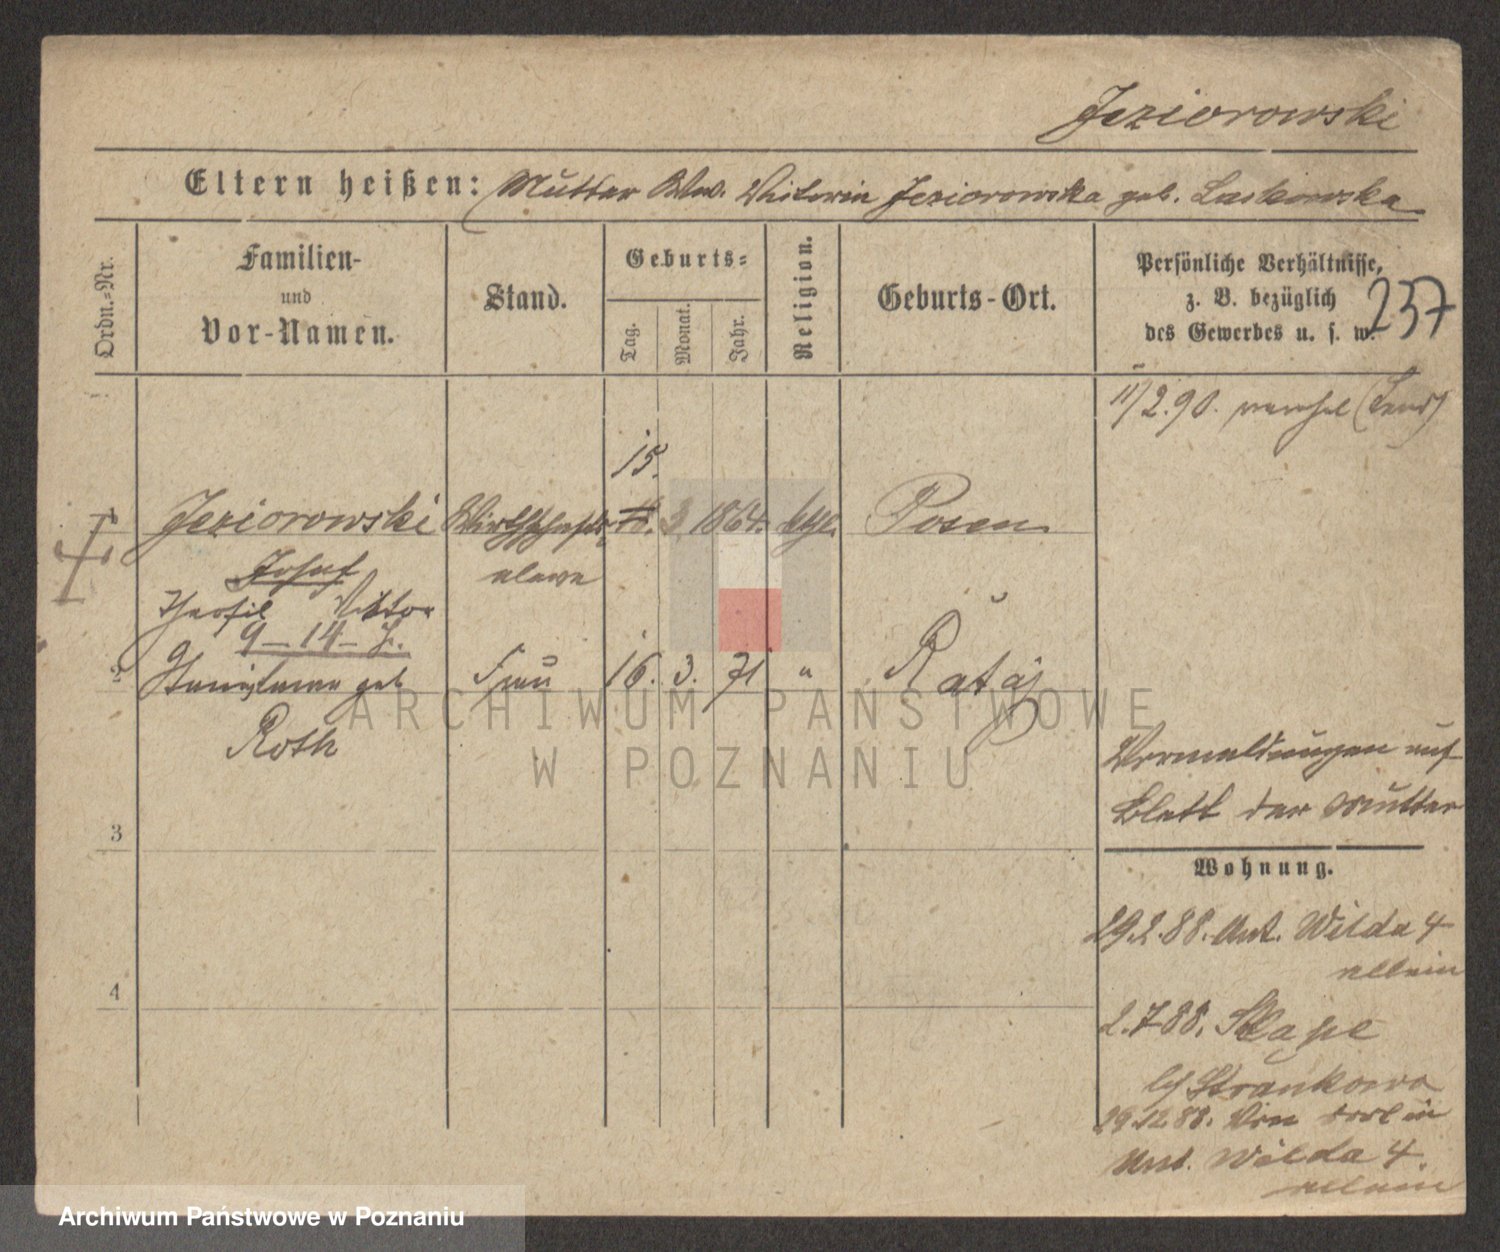 Jeziorowski
Eltern heißen: Mutter Ww. Victoria Jeziorowska geb. Laskowska
Ordn.-Nr.
Familien-
und
Vor-Namen.
Stand.
Geburts-
Tag.
Monat.
Jahr.
Religion.
Geburts-Ort.
Persönliche Verhältnisse,
z. B. bezüglich
des Gewerbes u. s. w.
257
11/2.90.
15.
1 Jeziorowski Wirthschafts- 18. 3. 1864. kath. Posen
Josef eleve
Theofil Viktor
9-14-J.
2 geb Frau 16. 3. 71 " Rataj
Roth
Vermeldungen auf
Blatt der Mutter
3
Wohnung.
29.2.88. Unt. Wilda 4
allein
4
2.7.88.
b/ Strankowo
29.12.88. Von
Unt. Wilda 4.
allein
ARCHIWUM PAŃSTWOWE
W POZNANIU
Archiwum Państwowe w Poznaniu